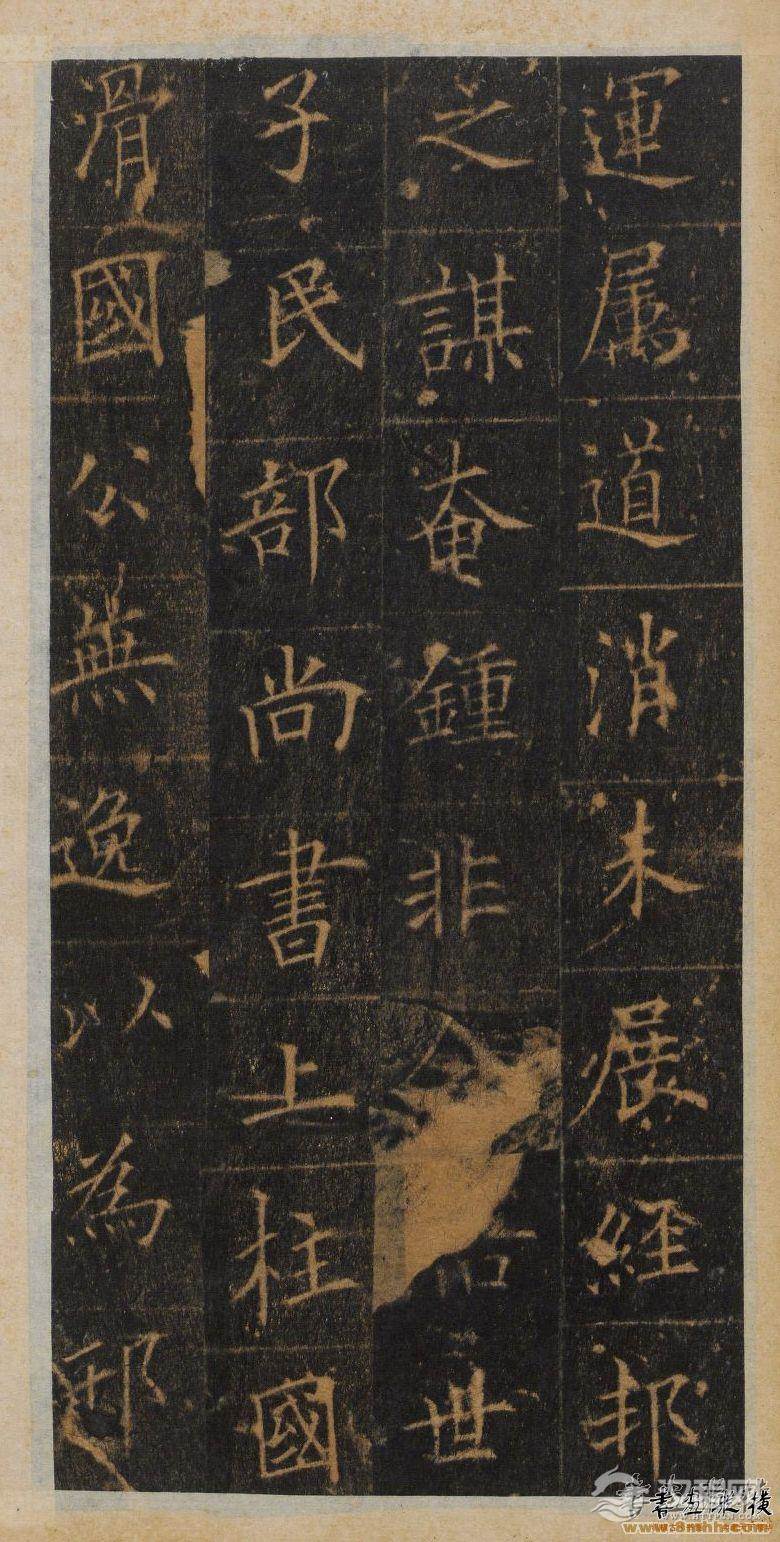 運属道消未展經邦
之謀奄鍾非世
子民部尚書上柱國
滑國公無逸以為邢
www.8mhh.com